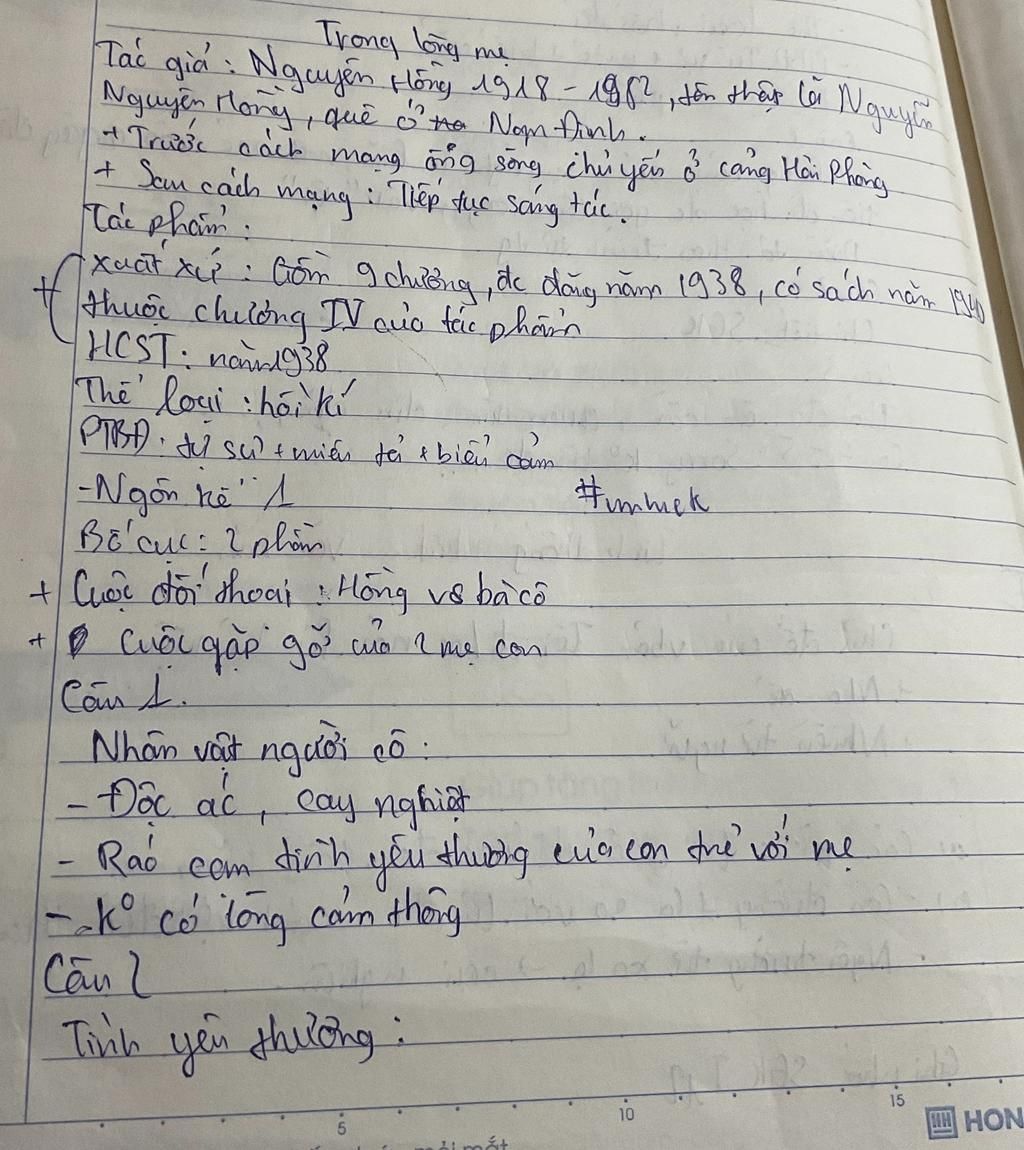 Trong lòng mẹ
Tác giả: Nguyên Hồng 1918 - 1982, tên thật là Nguyễn
Nguyên Hồng, quê ở Nam Định.
+ Trước cách mạng ông sống chủ yếu ở cảng Hải Phòng
+ Sau cách mạng: Tiếp tục sáng tác.
Tác phẩm:
+ xuất xứ: Gồm 9 chương, đc đăng năm 1938, có sách năm 1940
thuộc chương IV của tác phẩm
HCST: năm 1938
Thể loại: hồi kí
PTBĐ: tự sự + miêu tả + biểu cảm
- Ngôn kể 1
#mmek
Bố cục: 2 phần
+ Cuộc đối thoại: Hồng vs bà cô
+ Cuộc gặp gỡ của 2 mẹ con
Câu 1.
Nhân vật người cô:
- Độc ác, cay nghiệt
- Ráo cam tình yêu thương của con trẻ với mẹ
- K° có lòng cảm thông
Câu 2
Tình yêu thương:
5 10 15
HON